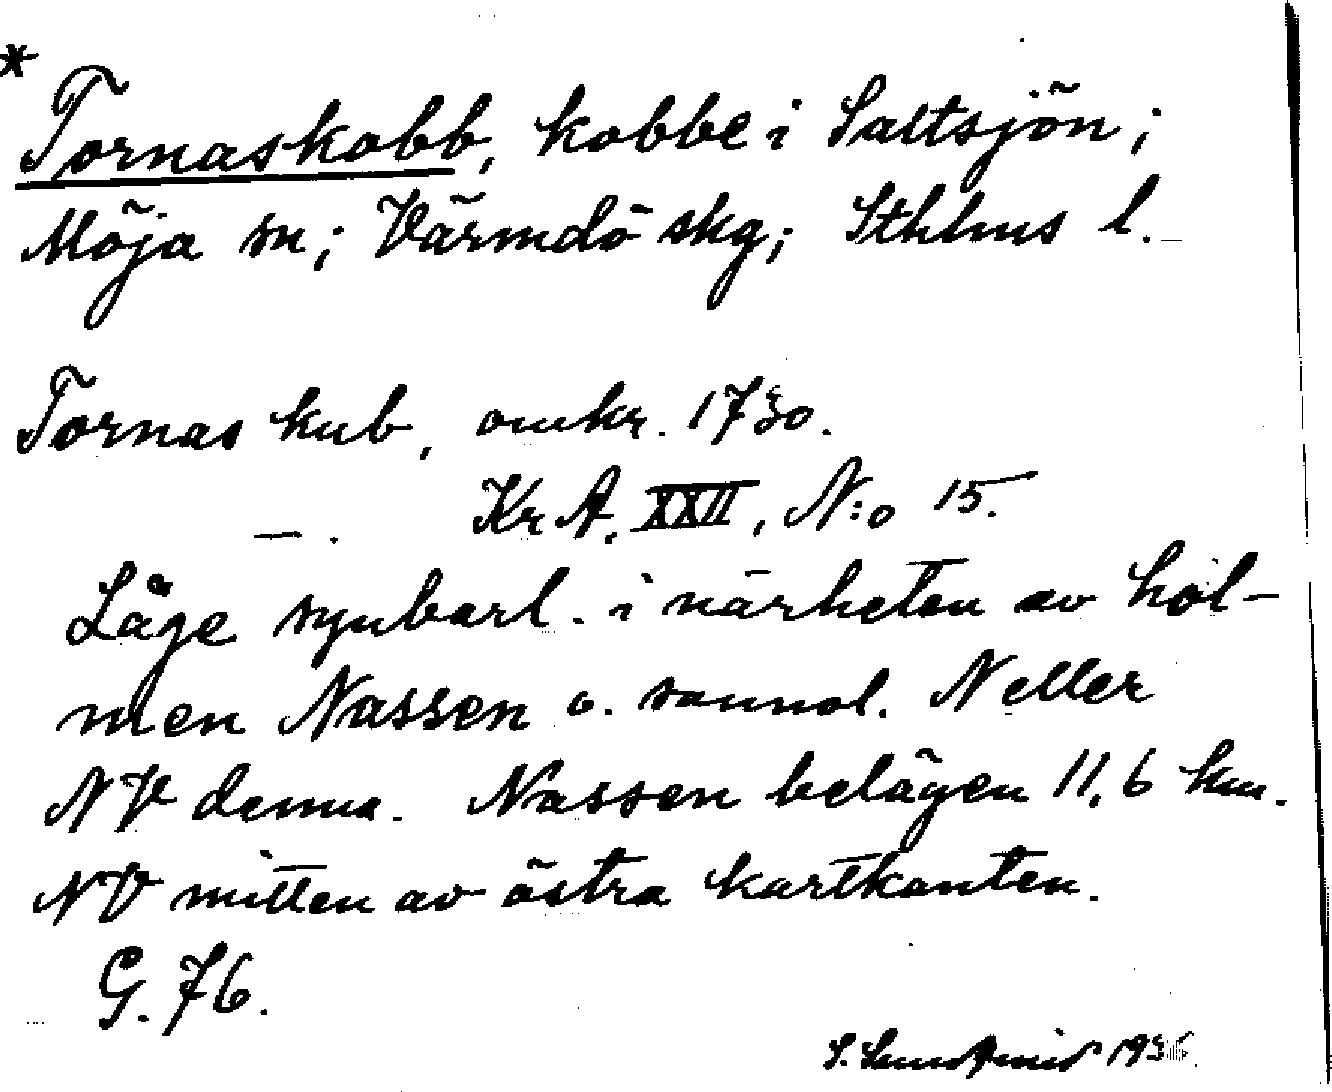 *
Tornaskobb, kobbe i Saltsjön;
Möja sn; Värmdö skg; Sthlms l.
Tornas kub, omkr. 1730.
— . Kr A. XXII, N:o 15.
Läge synbarl. i närheten av hol-
men Nassen o. sannol. N eller
NV denna. Nassen belägen 11,6 km.
NV mitten av östra kartkanten.
G. 76.
S. 1936